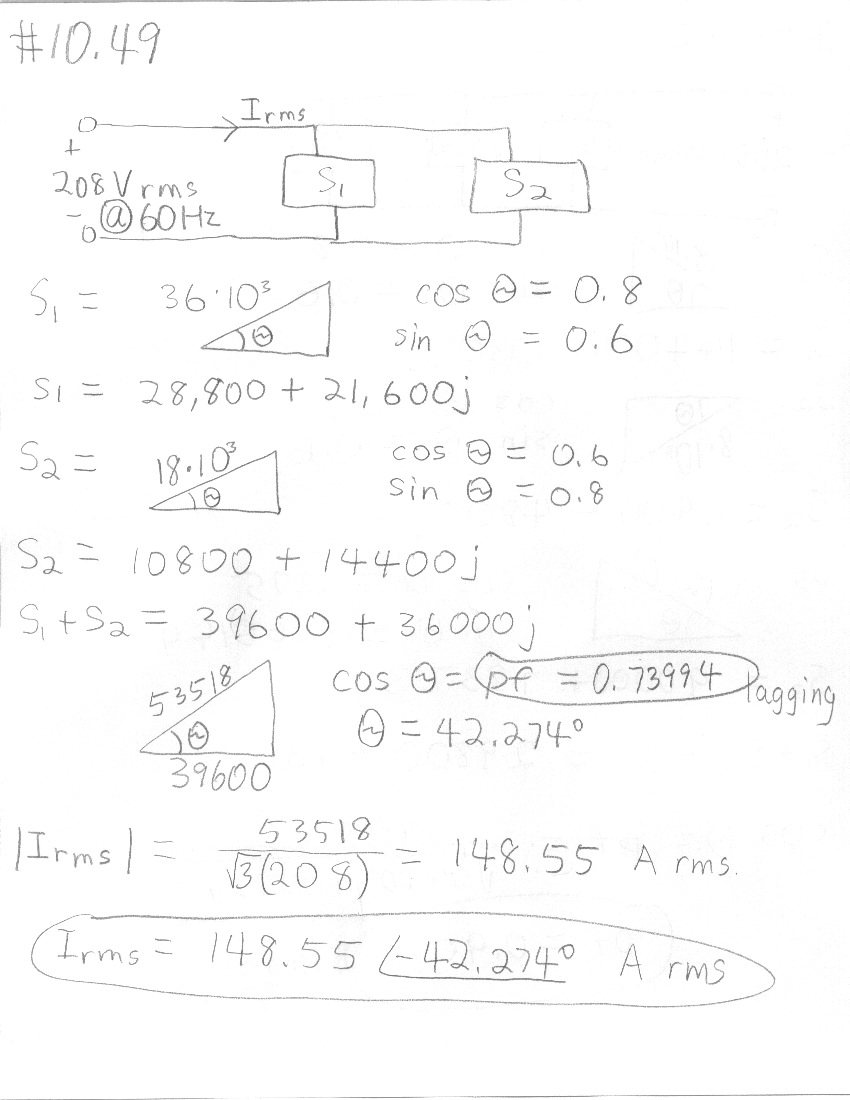 #10.49
Irms
+
208Vrms
- @60Hz
S₁
S₂
S₁ = 36·10³ θ cos θ = 0.8
sin θ = 0.6
S1 = 28,800 + 21,600j
S₂ = 18·10³ θ cos θ = 0.6
sin θ = 0.8
S₂ = 10800 + 14400j
S₁+S₂ = 39600 + 36000j
53518 θ 39600
cos θ = pf = 0.73994 lagging
θ = 42.274°
|Irms| = 53518 / √3(208) = 148.55 A rms.
Irms = 148.55 ∠-42.274° A rms